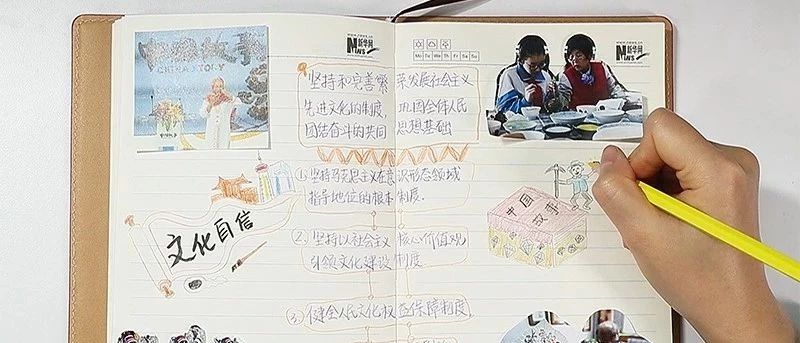 www.news.cn
新华网
NEWS
Mo Tu We Th Fr Sa Su
www.news.cn
新华网
NEWS
中国故事
CHINA STORY
坚持和完善繁荣发展社会主义
先进文化的制度，巩固全体人民
团结奋斗的共同思想基础
①坚持马克思主义在意识形态领域
指导地位的根本制度.
文化自信
中国
故事
2. 坚持以社会主义核心价值观
引领文化建设制度
3. 健全人民文化权益保障制度.